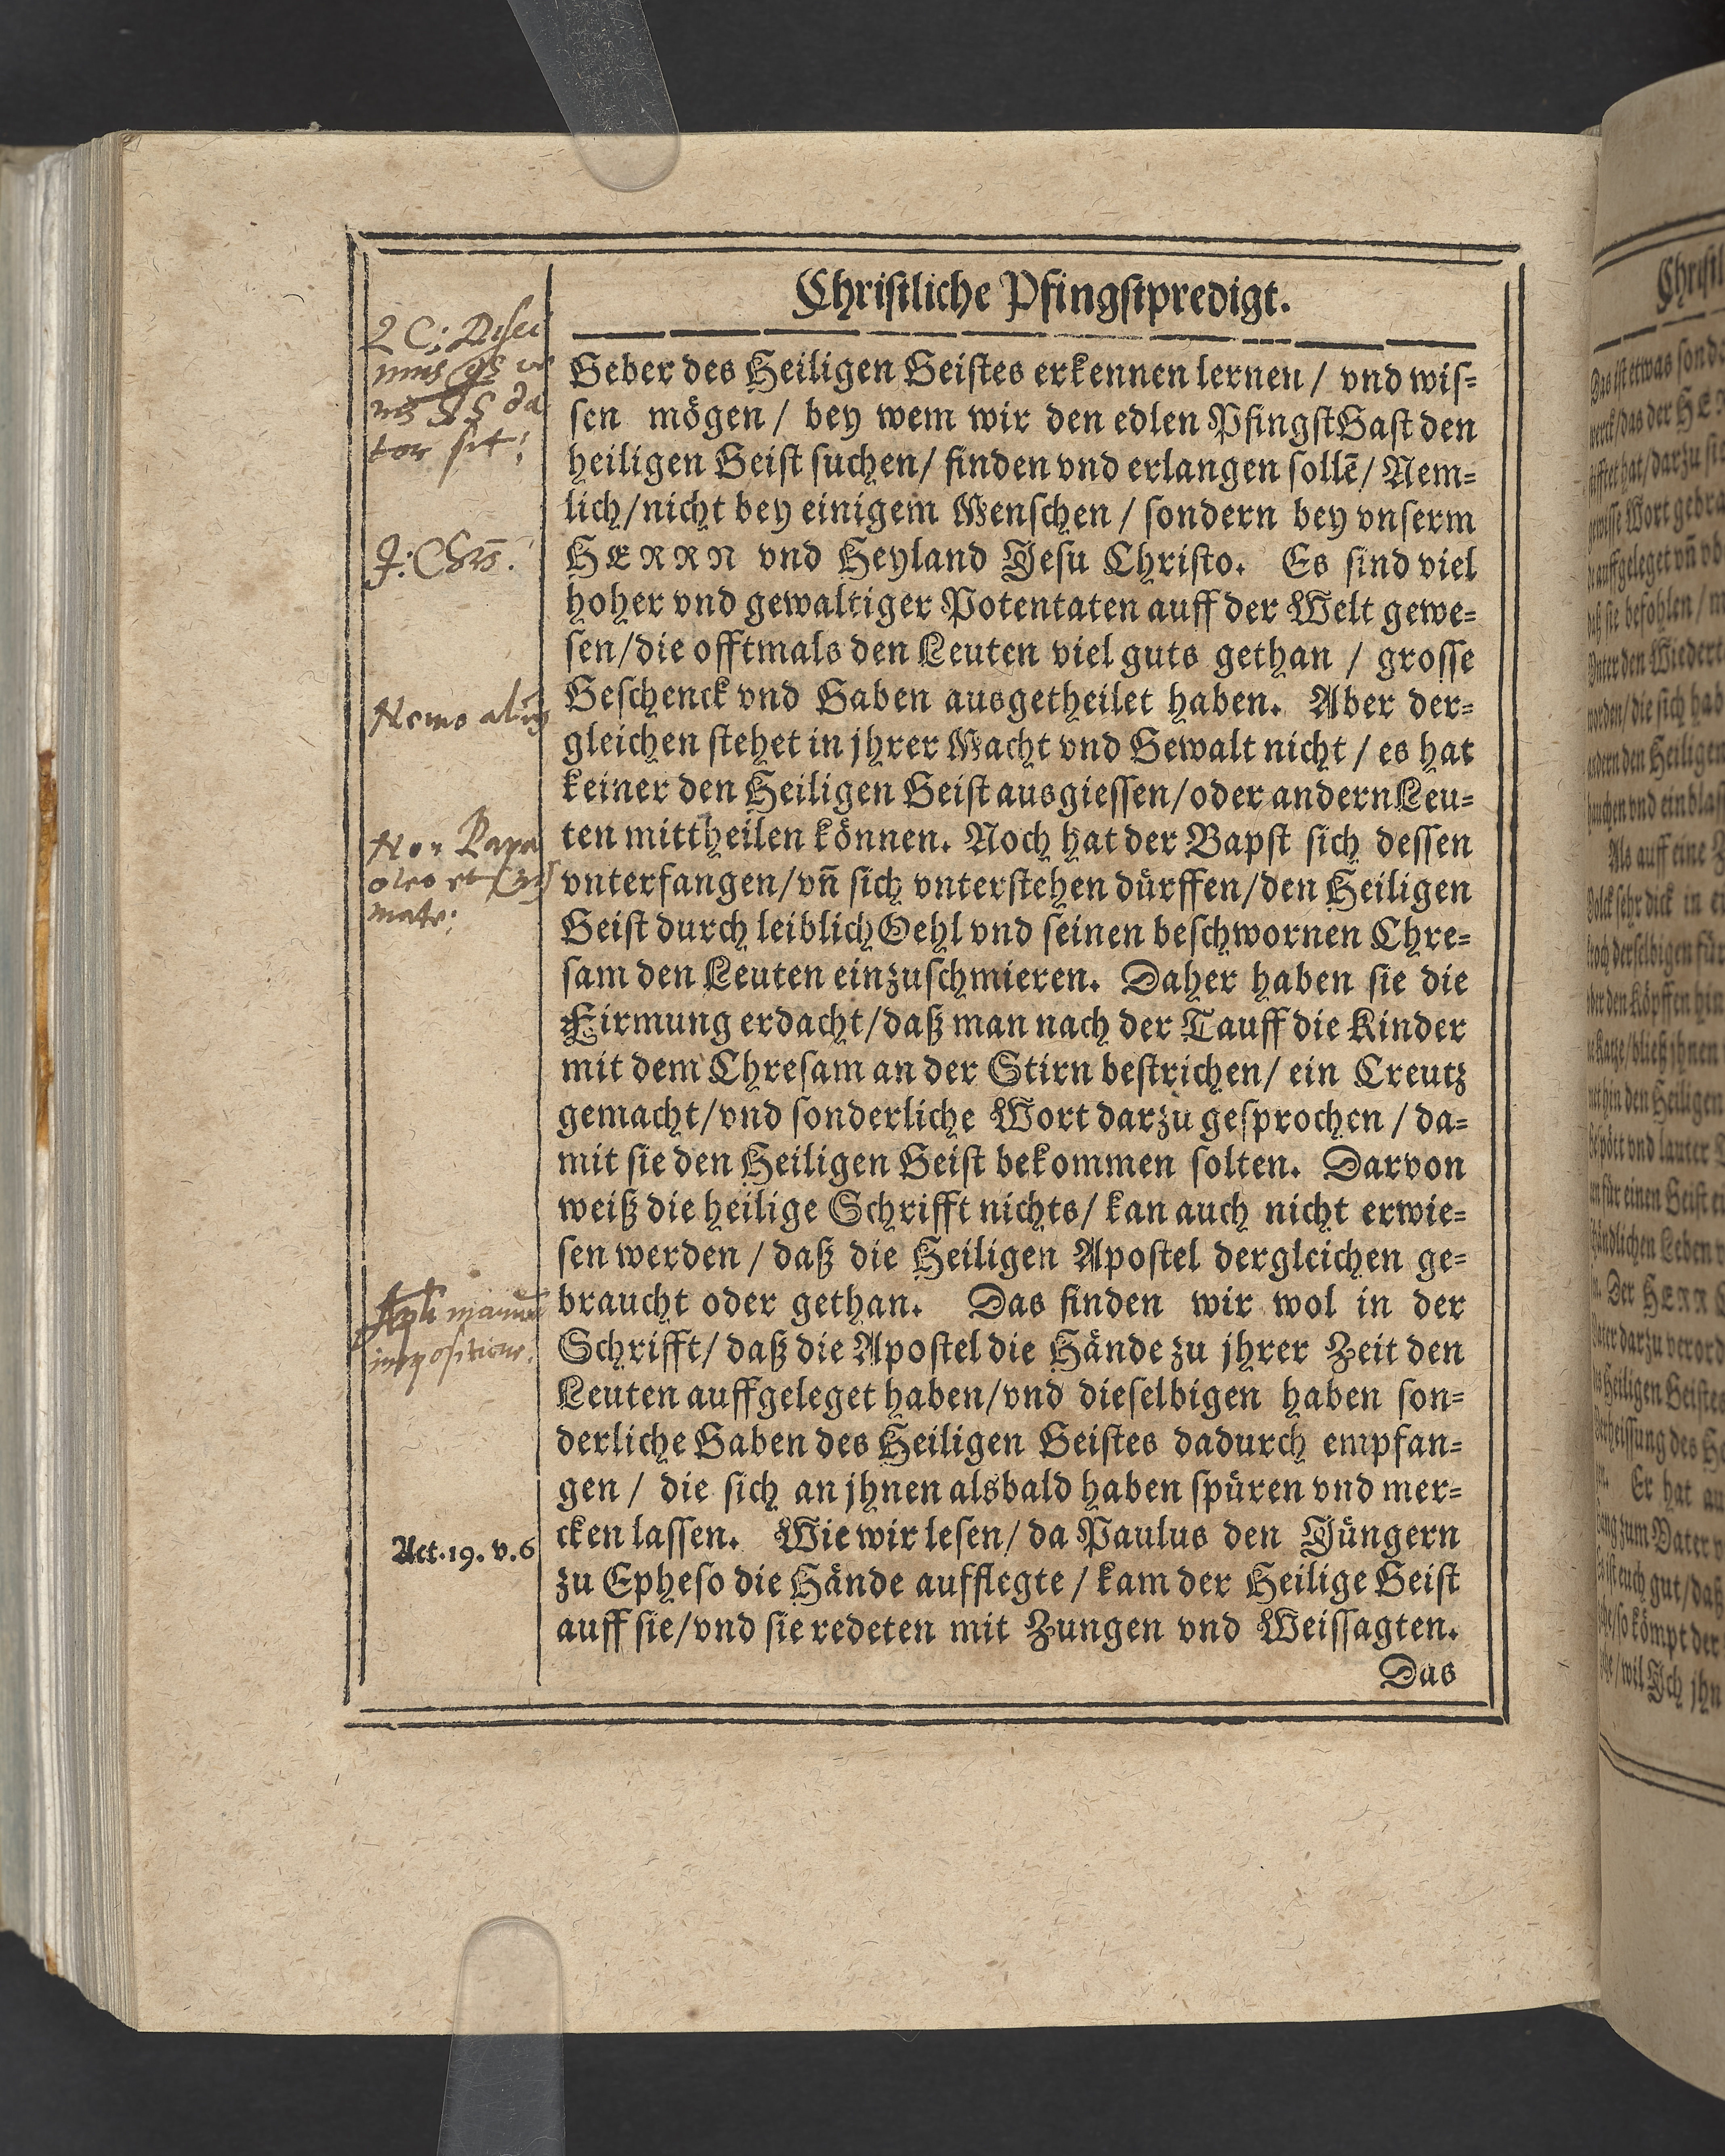 Christliche Pfingstpredigt.
Geber des Heiligen Geistes erkennen lernen / vnd wis-
sen mögen / bey wem wir den edlen PfingstGast den
heiligen Geist suchen / finden vnd erlangen sollẽ / Nem-
lich / nicht bey einigem Menschen / sondern bey vnserm
HERRN vnd Heyland Jesu Christo. Es sind viel
hoher vnd gewaltiger Potentaten auff der Welt gewe-
sen / die offtmals den Leuten viel guts gethan / grosse
Geschenck vnd Gaben ausgetheilet haben. Aber der-
gleichen stehet in jhrer Macht vnd Gewalt nicht / es hat
keiner den Heiligen Geist ausgiessen / oder andern Leu-
ten mittheilen können. Noch hat der Bapst sich dessen
vnterfangen / vñ sich vnterstehen dürffen / den Heiligen
Geist durch leiblich Oehl vnd seinen beschwornen Chre-
sam den Leuten einzuschmieren. Daher haben sie die
Firmung erdacht / daß man nach der Tauff die Kinder
mit dem Chresam an der Stirn bestrichen / ein Creutz
gemacht / vnd sonderliche Wort darzu gesprochen / da-
mit sie den Heiligen Geist bekommen solten. Darvon
weiß die heilige Schrifft nichts / kan auch nicht erwie-
sen werden / daß die Heiligen Apostel dergleichen ge-
braucht oder gethan. Das finden wir wol in der
Schrifft / daß die Apostel die Hände zu jhrer Zeit den
Leuten auffgeleget haben / vnd dieselbigen haben son-
derliche Gaben des Heiligen Geistes dadurch empfan-
gen / die sich an jhnen alsbald haben spüren vnd mer-
cken lassen. Wie wir lesen / da Paulus den Jüngern
zu Epheso die Hände aufflegte / kam der Heilige Geist
auff sie / vnd sie redeten mit Zungen vnd Weissagten.
Das
tor sit:
J: Chrs.
Nemo alius
Non Papa
oleo et
mate:
Apli manuū
impositione.
Act. 19. v. 6